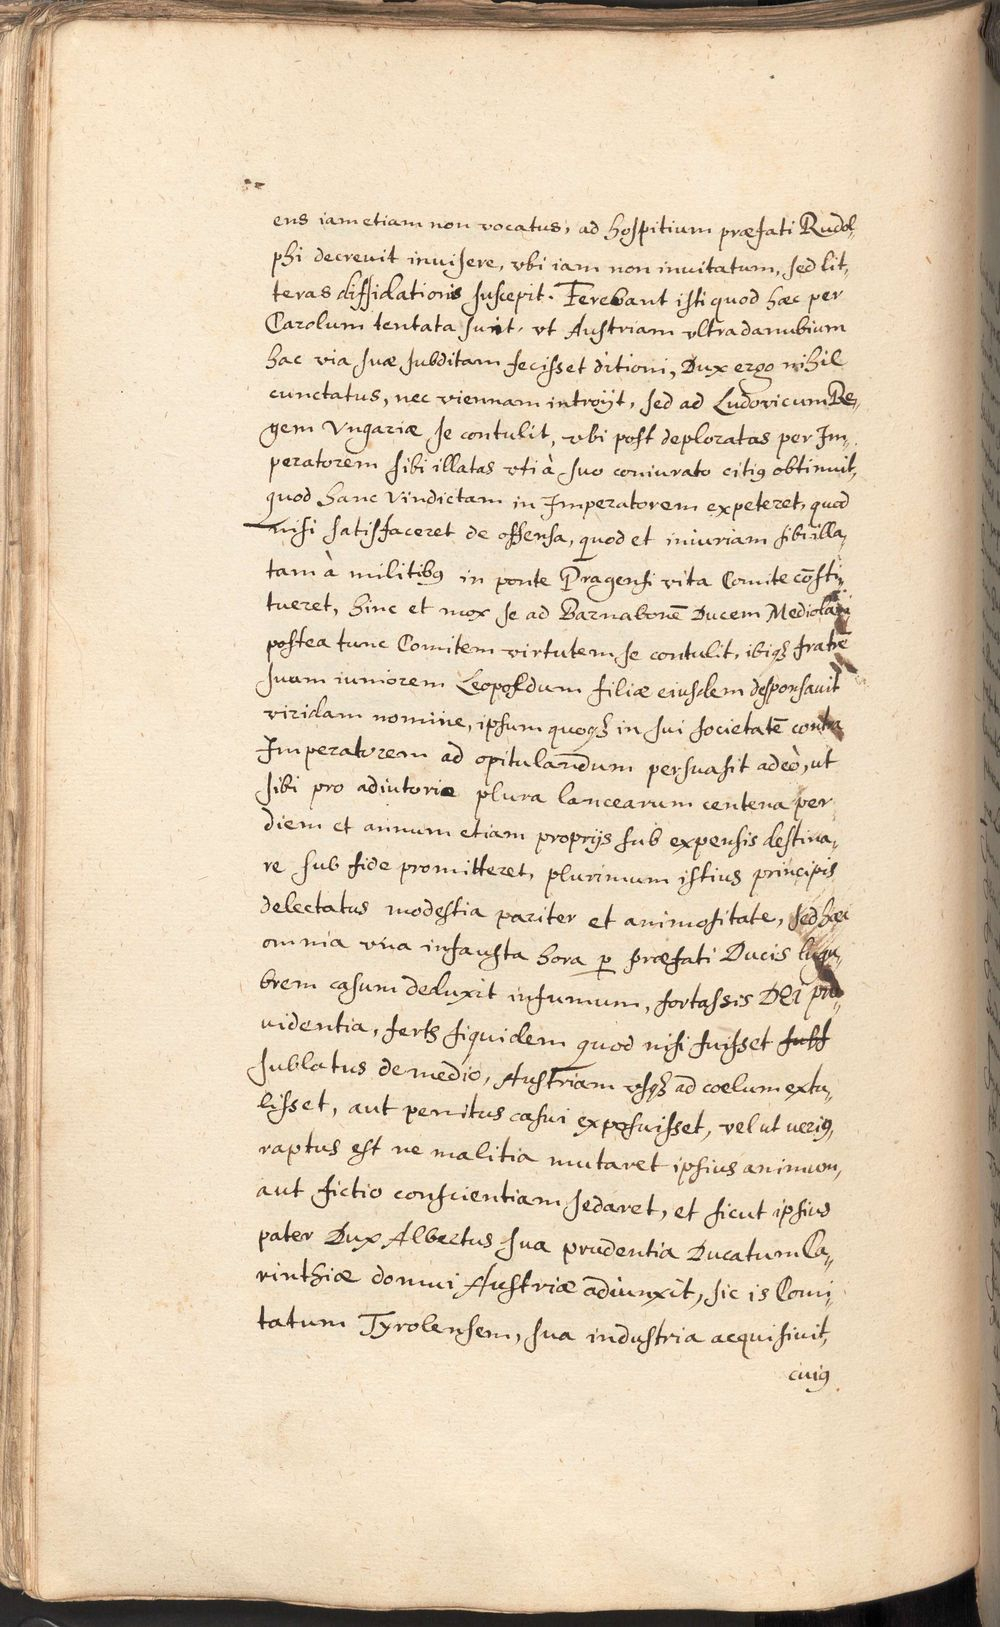 ens iam etiam non vocatus, ad hospitium præfati Rudol„
phi decreuit inuisere, vbi iam non inuitatum, sed lit„
teras diffidationis suscepit. Ferebant isti quod hæc per
Carolum tentata sunt, vt Austriam vltra danubium
hac via suæ subditam fecisset ditioni, Dux ergo nihil
cunctatus, nec viennam introijt, sed ad Ludovicum Re„
gem Vngariæ se contulit, vbi post deploratas per Im„
peratorem sibi illatas vti à suo coniurato citi9 obtinuit,
quod hanc Vindictam in Imperatorem expeteret, quod
nisi satisfaceret de offensa, quod et iniuriam sibi illa„
tam à militib9 in ponte Pragensi vita Comite cōsti„
tueret, hinc et mox se ad Barnabonē Ducem Mediolani
postea tunc Comitem virtutem se contulit, ibiqꝫ fratrē
suum iuniorem Leopoldum filiæ eiusdem desponsauit
viridam nomine, ipsum quoqꝫ in sui societatē contra
Imperatorem ad opitulandum persuasit adeò, ut
sibi pro adiutorio plura lancearum centena per
diem et annum etiam proprijs sub expensis destina„
re sub fide promitteret, plurimum istius principis
delectatus modestia pariter et animositate, sed hæc
omnia vna infausta hora ꝑ præfati Ducis lugu„
brem casum deduxit infumum, fortassis DEI pro„
uidentia, ferts siquidem quod nisi fuisset suff
sublatus de medio, Austriam vsqꝫ ad coelum extu„
lisset, aut penitus casui exposuisset, vel ut ueri9,
raptus est ne malitia mutaret ipsius animum,
aut fictio conscientiam sedaret, et sicut ipsius
pater Dux Albertus sua prudentia Ducatum Ca„
rinthiæ domui Austriæ adiunxit, sic is Comi„
tatum Tyrolensem, sua industria acquisiuit,
cui9